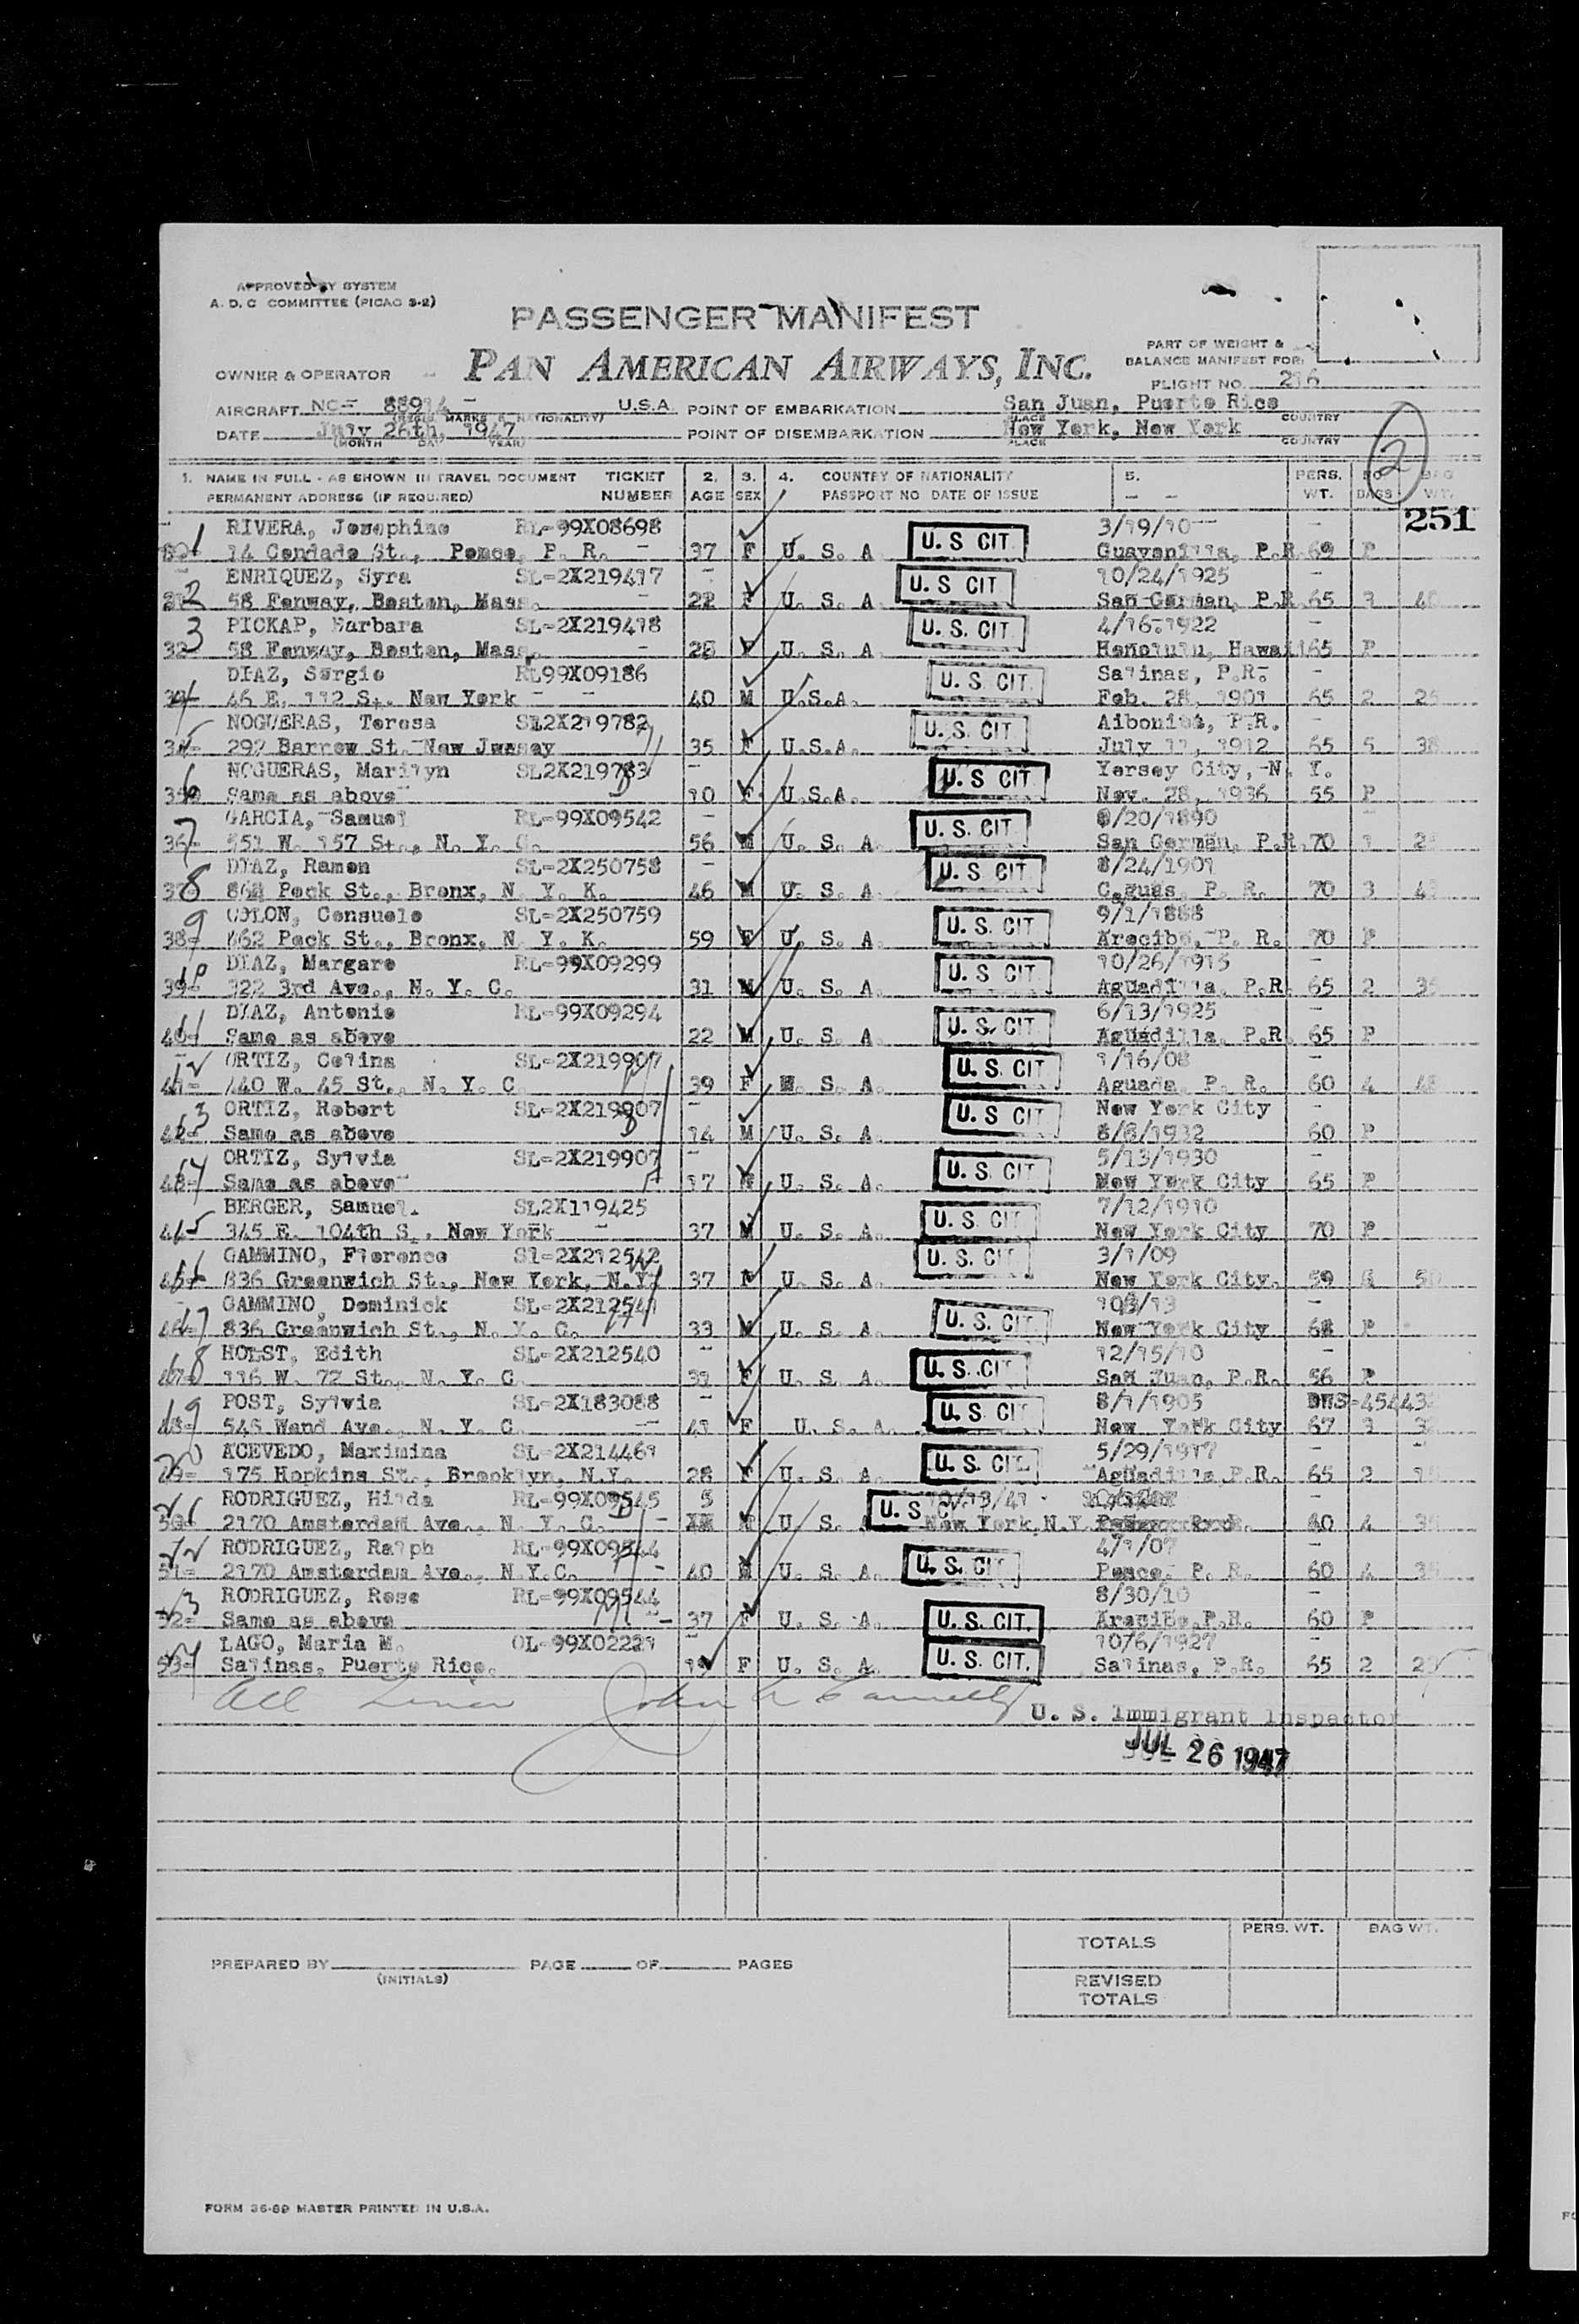 APPROVED BY SYSTEM
A. D. C COMMITTEE (PICAO S-2)
PASSENGER MANIFEST
PAN AMERICAN AIRWAYS, INC.
PART OF WEIGHT &
BALANCE MANIFEST FOR:
OWNER & OPERATOR
FLIGHT NO. 216
AIRCRAFT NC- U.S.A. POINT OF EMBARKATION San Juan, Puerto Rico
(REGIS. MARKS & NATIONALITY) PLACE COUNTRY
DATE July 26th, 1947 POINT OF DISEMBARKATION New York, New York
(MONTH DAY YEAR) PLACE COUNTRY
2
1. NAME IN FULL - AS SHOWN IN TRAVEL DOCUMENT TICKET 2. 3. 4. COUNTRY OF NATIONALITY 5. PERS. NO BAG
PERMANENT ADDRESS (IF REQUIRED) NUMBER AGE SEX PASSPORT NO DATE OF ISSUE WT. BAGS WT.
251
1 RIVERA, Josephine RL-99X08698 3/19/10
14 Condado St., Ponce, P. R. 37 F U. S. A. U. S CIT Guayanilla, P.R. 69 P
2 ENRIQUEZ, Syra SL-2X219417 10/24/1925
58 Fenway, Boston, Mass. 22 F U. S. A. U. S CIT San German, P.R. 65 3
3 PICKAP, Barbara SL-2X219418 4/16-1922
32 58 Fenway, Boston, Mass. F U. S. A. U. S. CIT. Honolulu, Hawaii 65 P
DIAZ, Sergio RL99X09186 Salinas, P.R.
46 E. 112 St. New York 40 M U.S.A. U. S. CIT. Feb. 28, 1901 65 2
NOGUERAS, Teresa SL2X219782 P.R.
292 Barrow St. New Jersey 35 F U.S.A. U. S. CIT July 11, 1912 65 5 38
6 NOGUERAS, Marilyn SL2X219783 Yersey City, N. Y.
Same as above 10 F U.S.A. U. S CIT Nov. 28, 1936 55 P
7 GARCIA, Samuel RL-99X09542 8/20/1890
36- 551 W. 157 St., N. Y. C. 56 M U. S. A. U. S. CIT. San German, P.R. 70
8 DIAZ, Ramon SL-2X250758 8/24/1901
Peck St., Bronx, N. Y. K. 46 M U. S. A. U. S CIT Caguas, P. R. 70 3
9 COLON, Consuelo SL-2X250759 9/1/1888
38- 862 Peck St., Bronx, N. Y. K. 59 F U. S. A. U. S CIT. Arecibo, P. R. 70 P
10 DIAZ, Margaro RL-99X09299 10/26/1915
39- 322 3rd Ave., N. Y. C. 31 M U. S. A. U. S CIT. Aguadilla, P.R. 65 2
11 DIAZ, Antonio RL-99X09294 6/13/1925
40- Same as above 22 M U. S. A. U. S. CIT Aguadilla, P.R. 65 P
ORTIZ, Celina SL-2X219907 1/16/08
41- 440 W. 45 St., N. Y. C. 39 F U. S. A. U. S. CIT Aguada, P. R. 60 4
ORTIZ, Robert SL-2X219907 New York City
42- Same as above 14 M U. S. A. U. S CIT 8/8/1932 60 P
ORTIZ, Sylvia SL-2X219907 5/13/1930
43- Same as above 17 U. S. A. U. S CIT New York City 65 P
BERGER, Samuel. SL2X119425 7/12/1910
345 E. 104th S . New York 37 M U. S. A. U. S. CIT New York City 70 P
GAMMINO, Florence Sl-2X212542 3/1/09
836 Greenwich St., New York, N.Y. 37 U. S. A. U. S. CIT New York City. 59
GAMMINO, Dominick SL-2X212541
836 Greenwich St., N. Y. C. 33 M U. S. A. U. S. CIT. New York City P
HOLST, Edith SL-2X212540 12/15/10
116 W. 72 St., N. Y. C. F U. S. A. U. S. CIT San Juan, P.R. 56 P
POST, Sylvia SL-2X183088 8/1/1905
545 Wand Ave., N. Y. C. 41 F U. S. A. U. S. CIT New York City 67 3
ACEVEDO, Maximina SL-2X214461 5/29/1917
175 Hopkins St., Brooklyn, N.Y. 28 F U. S. A. U. S. CIT. Aguadilla, P.R. 65 2
RODRIGUEZ, Hilda RL-99X09545 5
2170 Amsterdam Ave., N. Y. C. U. S. U. S New York, N.Y. 40 4
RODRIGUEZ, Ralph RL-99X09544 4/1/07
2170 Amsterdam Ave., N.Y.C. 40 M U. S. A. U. S. CIT Ponce, P. R. 60 4
RODRIGUEZ, Rose RL-99X09544 8/30/10
52- Same as above 37 F U. S. A. U. S. CIT. Arecibo, P.R. 60 P
LAGO, Maria M. OL-99X02221 1076/1927
53- Salinas, Puerto Rico. F U. S. A. U. S. CIT. Salinas, P.R. 65 2
All John
U. S. Immigrant Inspector
JUL 26 1947
TOTALS PERS. WT. BAG WT.
PREPARED BY PAGE OF PAGES
(INITIALS)
REVISED
TOTALS
FORM 36-89 MASTER PRINTED IN U.S.A.